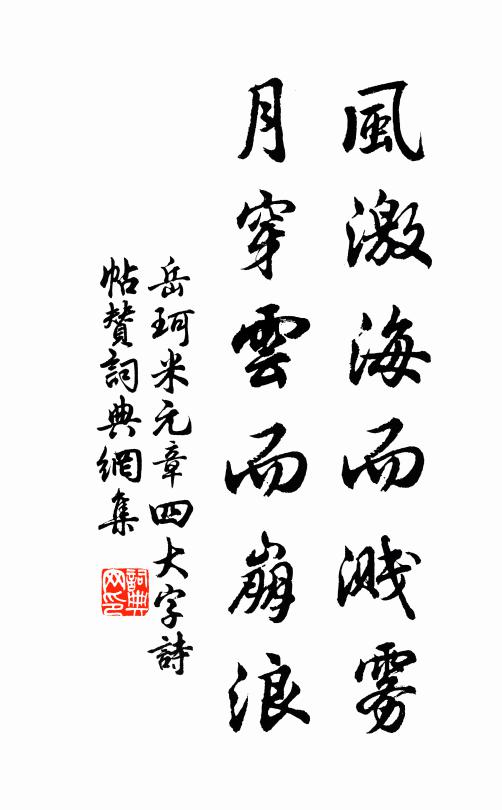 風激海而濺雾
月穿雲而崩浪
岳珂米元章四大字詩
帖赞詞典網集
詞典
网印